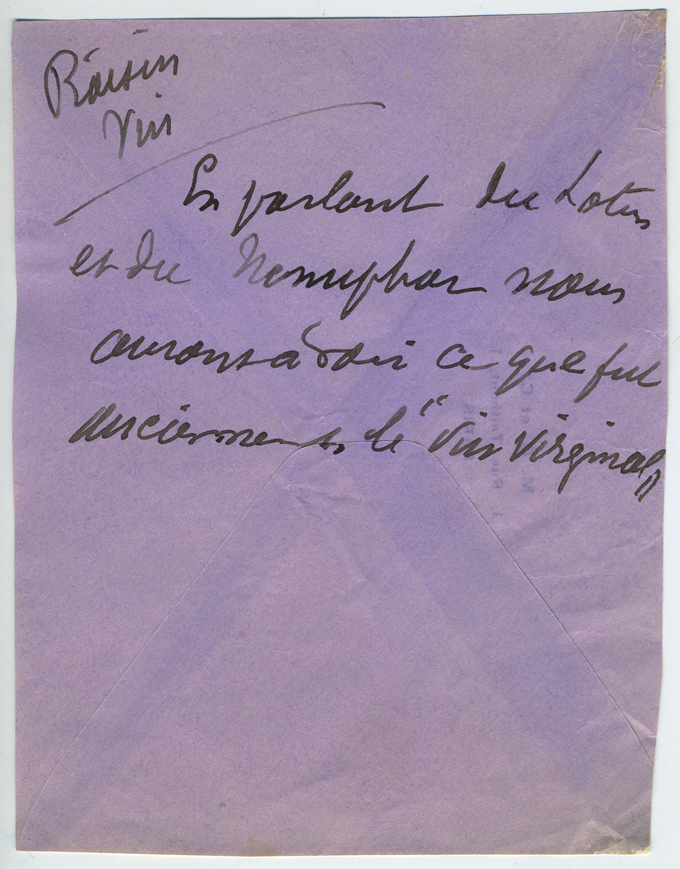 Raisin
Vin
En parlant du Lotus
et du Nenuphar nous
aurons à voir ce que fut
anciennement le "Vin Virginal"